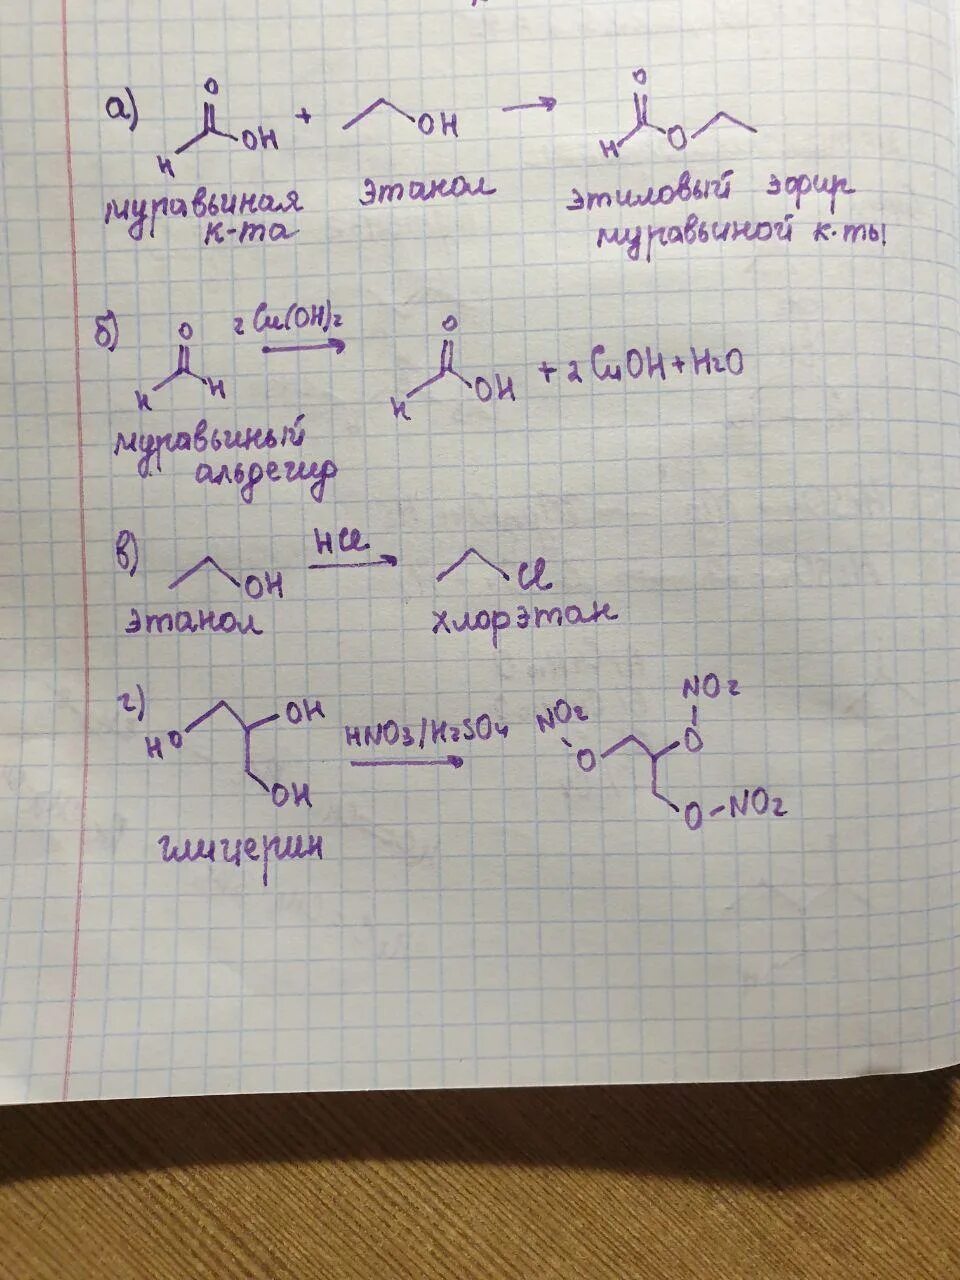 а) H O OH + OH → H O O
муравьиная этанол этиловый эфир
к-та муравьиной к-ты
б) H O H 2 Cu(OH)2 → H O OH + 2 CuOH + H2O
муравьиный
альдегид
в) OH HCl → Cl
этанол хлорэтан
г) HO OH OH HNO3/H2SO4 → NO2 O O NO2 O-NO2
глицерин